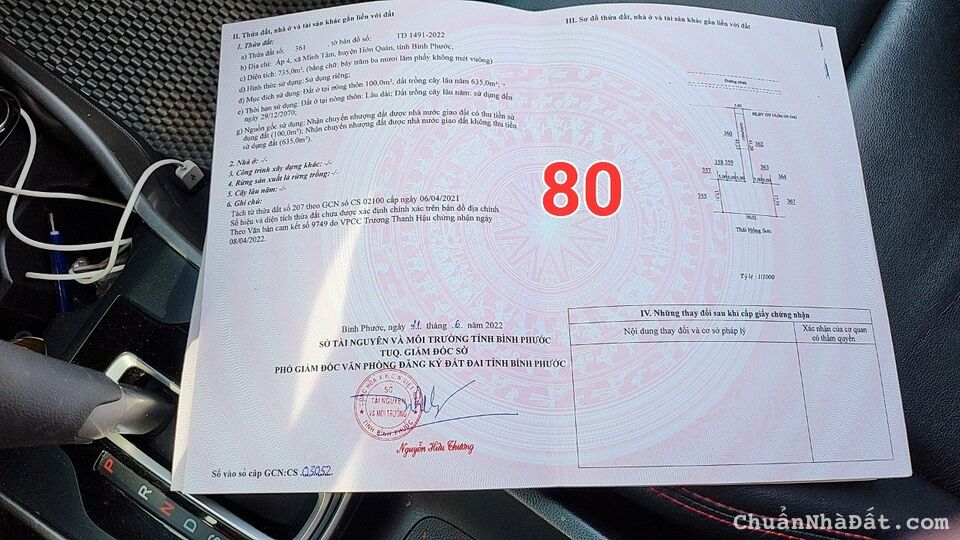 II. Thửa đất, nhà ở và tài sản khác gắn liền với đất
1. Thửa đất:
a) Thửa đất số: 361 , tờ bản đồ số: TĐ 1491-2022
b) Địa chỉ: Ấp 4, xã Minh Tâm, huyện Hớn Quản, tỉnh Bình Phước;
c) Diện tích: 735,0m², (bằng chữ: bảy trăm ba mươi lăm phẩy không mét vuông)
d) Hình thức sử dụng: Sử dụng riêng;
đ) Mục đích sử dụng: Đất ở tại nông thôn 100,0m², đất trồng cây lâu năm 635,0m²; .
e) Thời hạn sử dụng: Đất ở tại nông thôn: Lâu dài; Đất trồng cây lâu năm: sử dụng đến
ngày 29/12/2070;
g) Nguồn gốc sử dụng: Nhận chuyển nhượng đất được nhà nước giao đất có thu tiền sử
dụng đất (100,0m²); Nhận chuyển nhượng đất được nhà nước giao đất không thu tiền
sử dụng đất (635,0m²).
2. Nhà ở: -/-
3. Công trình xây dựng khác: -/-
4. Rừng sản xuất là rừng trồng: -/-
5. Cây lâu năm: -/-
6. Ghi chú:
Tách từ thửa đất số 207 theo GCN số CS 02100 cấp ngày 06/04/2021
Số hiệu và diện tích thửa đất chưa được xác định chính xác trên bản đồ địa chính
Theo Văn bản cam kết số 9749 do VPCC Trương Thanh Hậu chứng nhận ngày
08/04/2022.
Bình Phước, ngày 21 tháng 6 năm 2022
SỞ TÀI NGUYÊN VÀ MÔI TRƯỜNG TỈNH BÌNH PHƯỚC
TUQ. GIÁM ĐỐC SỞ
PHÓ GIÁM ĐỐC VĂN PHÒNG ĐĂNG KÝ ĐẤT ĐAI TỈNH BÌNH PHƯỚC
SỞ
TÀI NGUYÊN
VÀ MÔI TRƯỜNG
TỈNH BÌNH PHƯỚC
Nguyễn Hữu Thương
Số vào sổ cấp GCN:CS 03052
III. Sơ đồ thửa đất, nhà ở và tài sản khác gắn liền với đất
360
362
357
358
359
363
364
355
367
Thái Hồng Sơn
Tỷ lệ : 1/1000
80
IV. Những thay đổi sau khi cấp giấy chứng nhận
Nội dung thay đổi và cơ sở pháp lý
Xác nhận của cơ quan
có thẩm quyền
P
R
N
D
S
ChuẩnNhàĐất.com